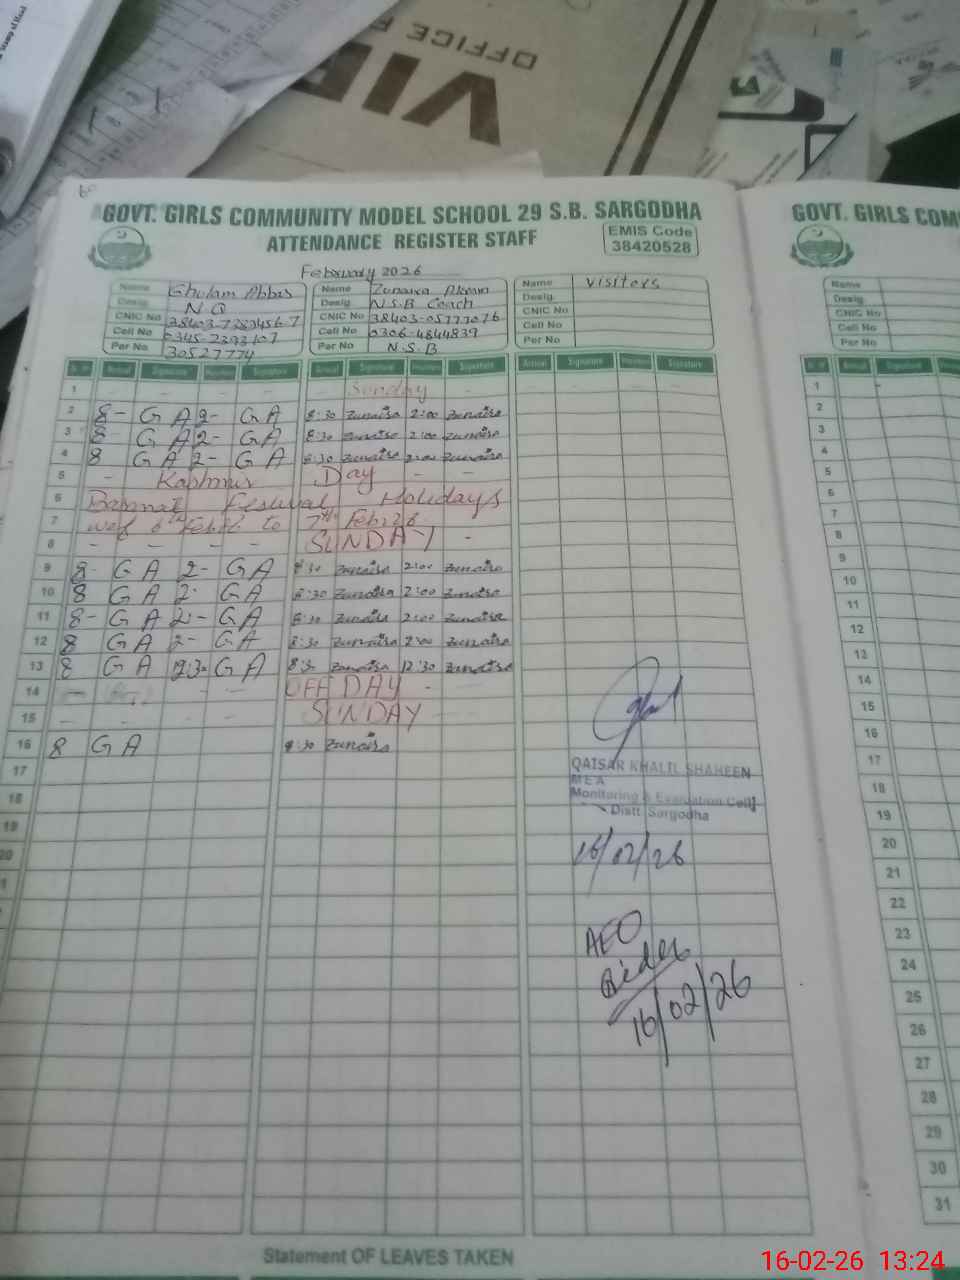 VIP
OFFICE F
GOVT. GIRLS COMMUNITY MODEL SCHOOL 29 S.B. SARGODHA
ATTENDANCE REGISTER STAFF
EMIS Code
38420528
February 2026
Name Ghulam Abbas
Desig. N Q
CNIC No
Cell No 0345-2393107
Per No 30527774
Name Zunaira Akram
Desig. N.S.B Coach
CNIC No 38403-05777076
Cell No 0306-4844839
Per No N.S.B
Name Visitors
Desig.
CNIC No
Cell No
Per No
Arrival Signature Departure Signature Arrival Signature Departure Signature Arrival Signature Departure Signature
1 - - - - Sunday
2 8- G A 2- G A 8:30 Zunaira 2:00 Zunaira
3 8- G A 2- G A 8:30 Zunaira 2:00 Zunaira
4 8 G A 2- G A 8:30 Zunaira 2:00 Zunaira
5 - Kashmir Day - -
6 Basant Festival Holidays
7 wef 6th Feb 26 to 7th Feb 26
8 - - - - SUNDAY -
9 8- G A 2- G A 8:30 Zunaira 2:00 Zunaira
10 8 G A 2- G A 8:30 Zunaira 2:00 Zunaira
11 8- G A 2- G A 8:30 Zunaira 2:00 Zunaira
12 8 G A 2- G A 8:30 Zunaira 2:00 Zunaira
13 8 G A 12:30 G A 8:30 Zunaira 12:30 Zunaira
14 - - OFF DAY -
15 - - - - SUNDAY -
16 8 G A 8:30 Zunaira
17
18
19
20
QAISAR KHALIL SHAHEEN
MEA
Monitoring & Evaluation Cell
Distt. Sargodha
16/02/26
AEO
16/02/26
Statement OF LEAVES TAKEN
GOVT. GIRLS COM
Name
Desig.
CNIC No
Cell No
Per No
Arrival Signature
1
2
3
4
5
6
7
8
9
10
11
12
13
14
15
16
17
18
19
20
21
22
23
24
25
26
27
28
29
30
31
16-02-26 13:24